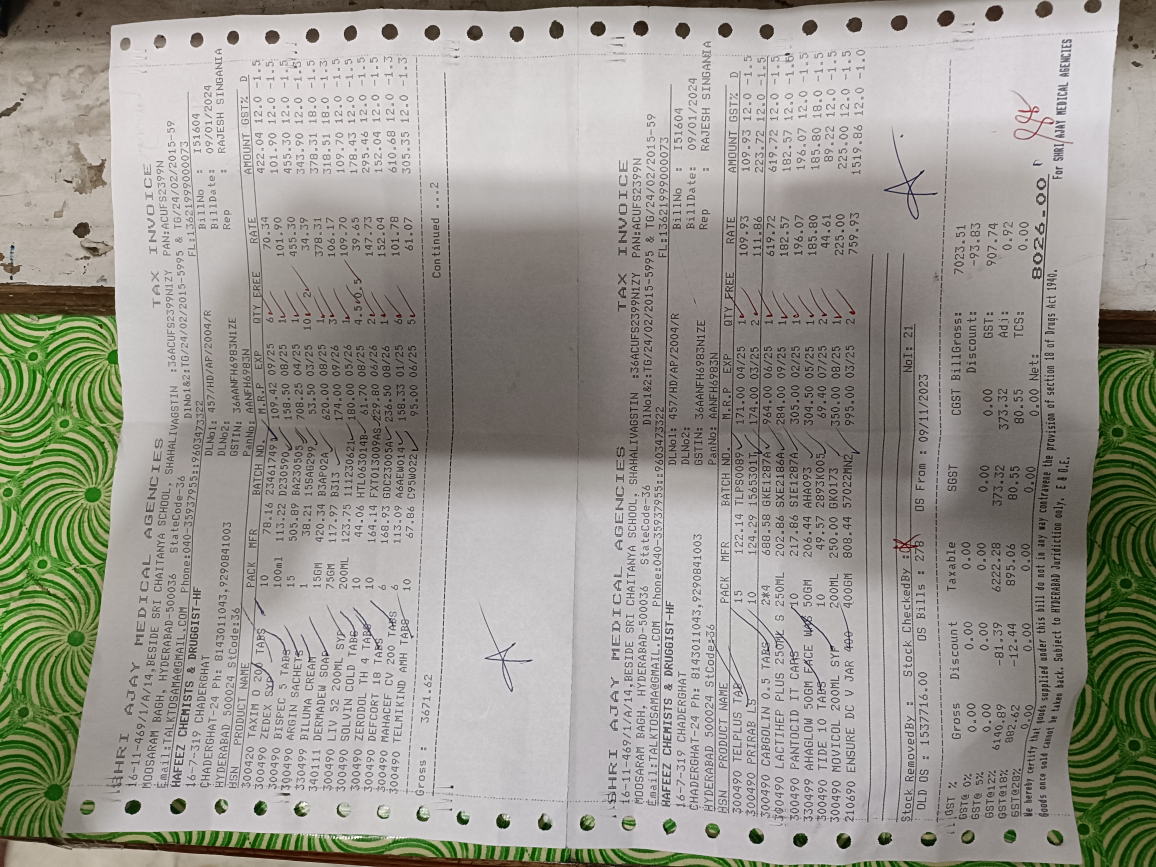 SHRI AJAY MEDICAL AGENCIES TAX INVOICE
16-11-469/1/A/14,BESIDE SRI CHAITANYA SCHOOL, SHAHALIVAGSTIN :36ACUFS2399N1ZY PAN:ACUFS2399N
MOOSARAM BAGH, HYDERABAD-500036 StateCode-36 DlNo1&2:TG/24/02/2015-5995 & TG/24/02/2015-59
Email:TALKTOSAMA@GMAIL.COM Phone:040-35937955::9603473322 FL:13621999000073
HAFEEZ CHEMISTS & DRUGGIST-HF DLNo1: 457/HD/AP/2004/R BillNo : I51604
16-7-319 CHADERGHAT DLNo2: BillDate: 09/01/2024
CHADERGHAT-24 Ph: 8143011043,9290841003 GSTIN: 36AANFH6983N1ZE Rep : RAJESH SINGANIA
HYDERABAD 500024 StCode:36 PanNo: AANFH6983N
HSN PRODUCT NAME PACK MFR BATCH NO. M.R.P EXP QTY FREE RATE AMOUNT GST% D
300420 TAXIM O 200 TABS 10 78.16 23461749 109.42 09/25 6 70.34 422.04 12.0 -1.5
300490 ZEDEX SYP 100ml 113.22 D230590 158.50 08/25 1 101.90 101.90 12.0 -1.5
300490 BISPEC 5 TABS 15 505.89 BA230505 708.25 04/25 1 455.30 455.30 12.0 -1.5
300490 ARGIPR SACHETS 1 38.21 15SAG299 53.50 03/25 10 2 34.39 343.90 12.0 -1.5
330499 BILUMA CREAM 15GM 420.34 B3AP02A 620.00 08/25 1 378.31 378.31 18.0 -1.5
340111 DERMADEW SOAP 75GM 117.97 B313 174.00 09/26 3 106.17 318.51 18.0 -1.3
300490 LIV 52 200ML SYP 200ML 123.75 111230621 180.00 05/26 1 109.70 109.70 12.0 -1.5
300490 SOLVIN COLD TABS 10 44.06 HTL06301B 61.70 08/26 4.5 0.5 39.65 178.43 12.0 -1.5
300490 ZERODOL TH 4 TABS 10 164.14 FXT013009AS 229.80 06/26 2 147.73 295.46 12.0 -1.5
300490 DEFCORT 18 TABS 6 168.93 GDC23005A 236.50 08/26 1 152.04 152.04 12.0 -1.5
300490 MAHACEF CV 200 TABS 6 113.09 A6AEW014 158.33 01/25 6 101.78 610.68 12.0 -1.3
300490 TELMIKIND AMH TABS 10 67.86 C95W022 95.00 06/25 5 61.07 305.35 12.0 -1.3
Gross : 3671.62 Continued ...2
SHRI AJAY MEDICAL AGENCIES TAX INVOICE
16-11-469/1/A/14,BESIDE SRI CHAITANYA SCHOOL, SHAHALIVAGSTIN :36ACUFS2399N1ZY PAN:ACUFS2399N
MOOSARAM BAGH, HYDERABAD-500036 StateCode-36 DlNo1&2:TG/24/02/2015-5995 & TG/24/02/2015-59
Email:TALKTOSAMA@GMAIL.COM Phone:040-35937955::9603473322 FL:13621999000073
HAFEEZ CHEMISTS & DRUGGIST-HF DLNo1: 457/HD/AP/2004/R BillNo : I51604
16-7-319 CHADERGHAT DLNo2: BillDate: 09/01/2024
CHADERGHAT-24 Ph: 8143011043,9290841003 GSTIN: 36AANFH6983N1ZE Rep : RAJESH SINGANIA
HYDERABAD 500024 StCode:36 PanNo: AANFH6983N
HSN PRODUCT NAME PACK MFR BATCH NO. M.R.P EXP QTY FREE RATE AMOUNT GST% D
300490 TELPLUS TAB 15 122.14 TLPS0089 171.00 04/25 1 109.93 109.93 12.0 -1.5
300490 PRIRAB LS 10 124.29 1565301T 174.00 03/25 2 111.86 223.72 12.0 -1.5
300490 CABGOLIN 0.5 TABS 2*4 688.58 GKE1287A 964.00 06/25 1 619.72 619.72 12.0 -1.5
300490 LACTIHEP PLUS 250ML S 250ML 202.86 SKE2186A 284.00 09/25 1 182.57 182.57 12.0 -1.5
300490 PANTOCID IT CAPS 10 217.86 SIE1287A 305.00 02/25 1 196.07 196.07 12.0 -1.5
330499 AHAGLOW 50GM FACE WAS 50GM 206.44 AHA093 304.50 05/25 1 185.80 185.80 18.0 -1.5
300490 TIDE 10 TABS 10 49.57 2B93K005 69.40 07/26 2 44.61 89.22 12.0 -1.0
300490 MOVICOL 200ML SYP 200ML 250.00 GK0173 350.00 08/25 1 225.00 225.00 12.0 -1.5
210690 ENSURE DC V JAR 400 400GM 808.44 57022MN2 995.00 03/25 2 759.93 1519.86 12.0 -1.0
Stock RemovedBy : Stock CheckedBy : NoI: 21
OLD OS : 1537716.00 OS Bills : 270 OS From : 09/11/2023
GST % Gross Discount Taxable SGST CGST BillGross: 7023.51
GST@ 0% 0.00 0.00 0.00 Discount: -93.83
GST@ 5% 0.00 0.00 0.00 0.00 0.00 GST: 907.74
GST@12% 6140.89 -81.39 6222.28 373.32 373.32 Adj: 0.92
GST@18% 882.62 -12.44 895.06 80.55 80.55 TCS: 0.00
GST@28% 0.00 0.00 0.00 0.00 Net: 8026.00
We hereby certify that goods supplied under this bill do not in any way contravene the provision of section 18 of Drugs Act 1940.
Goods once sold cannot be taken back. Subject to HYDERABAD Juridiction only. E & O.E. For SHRI AJAY MEDICAL AGENCIES